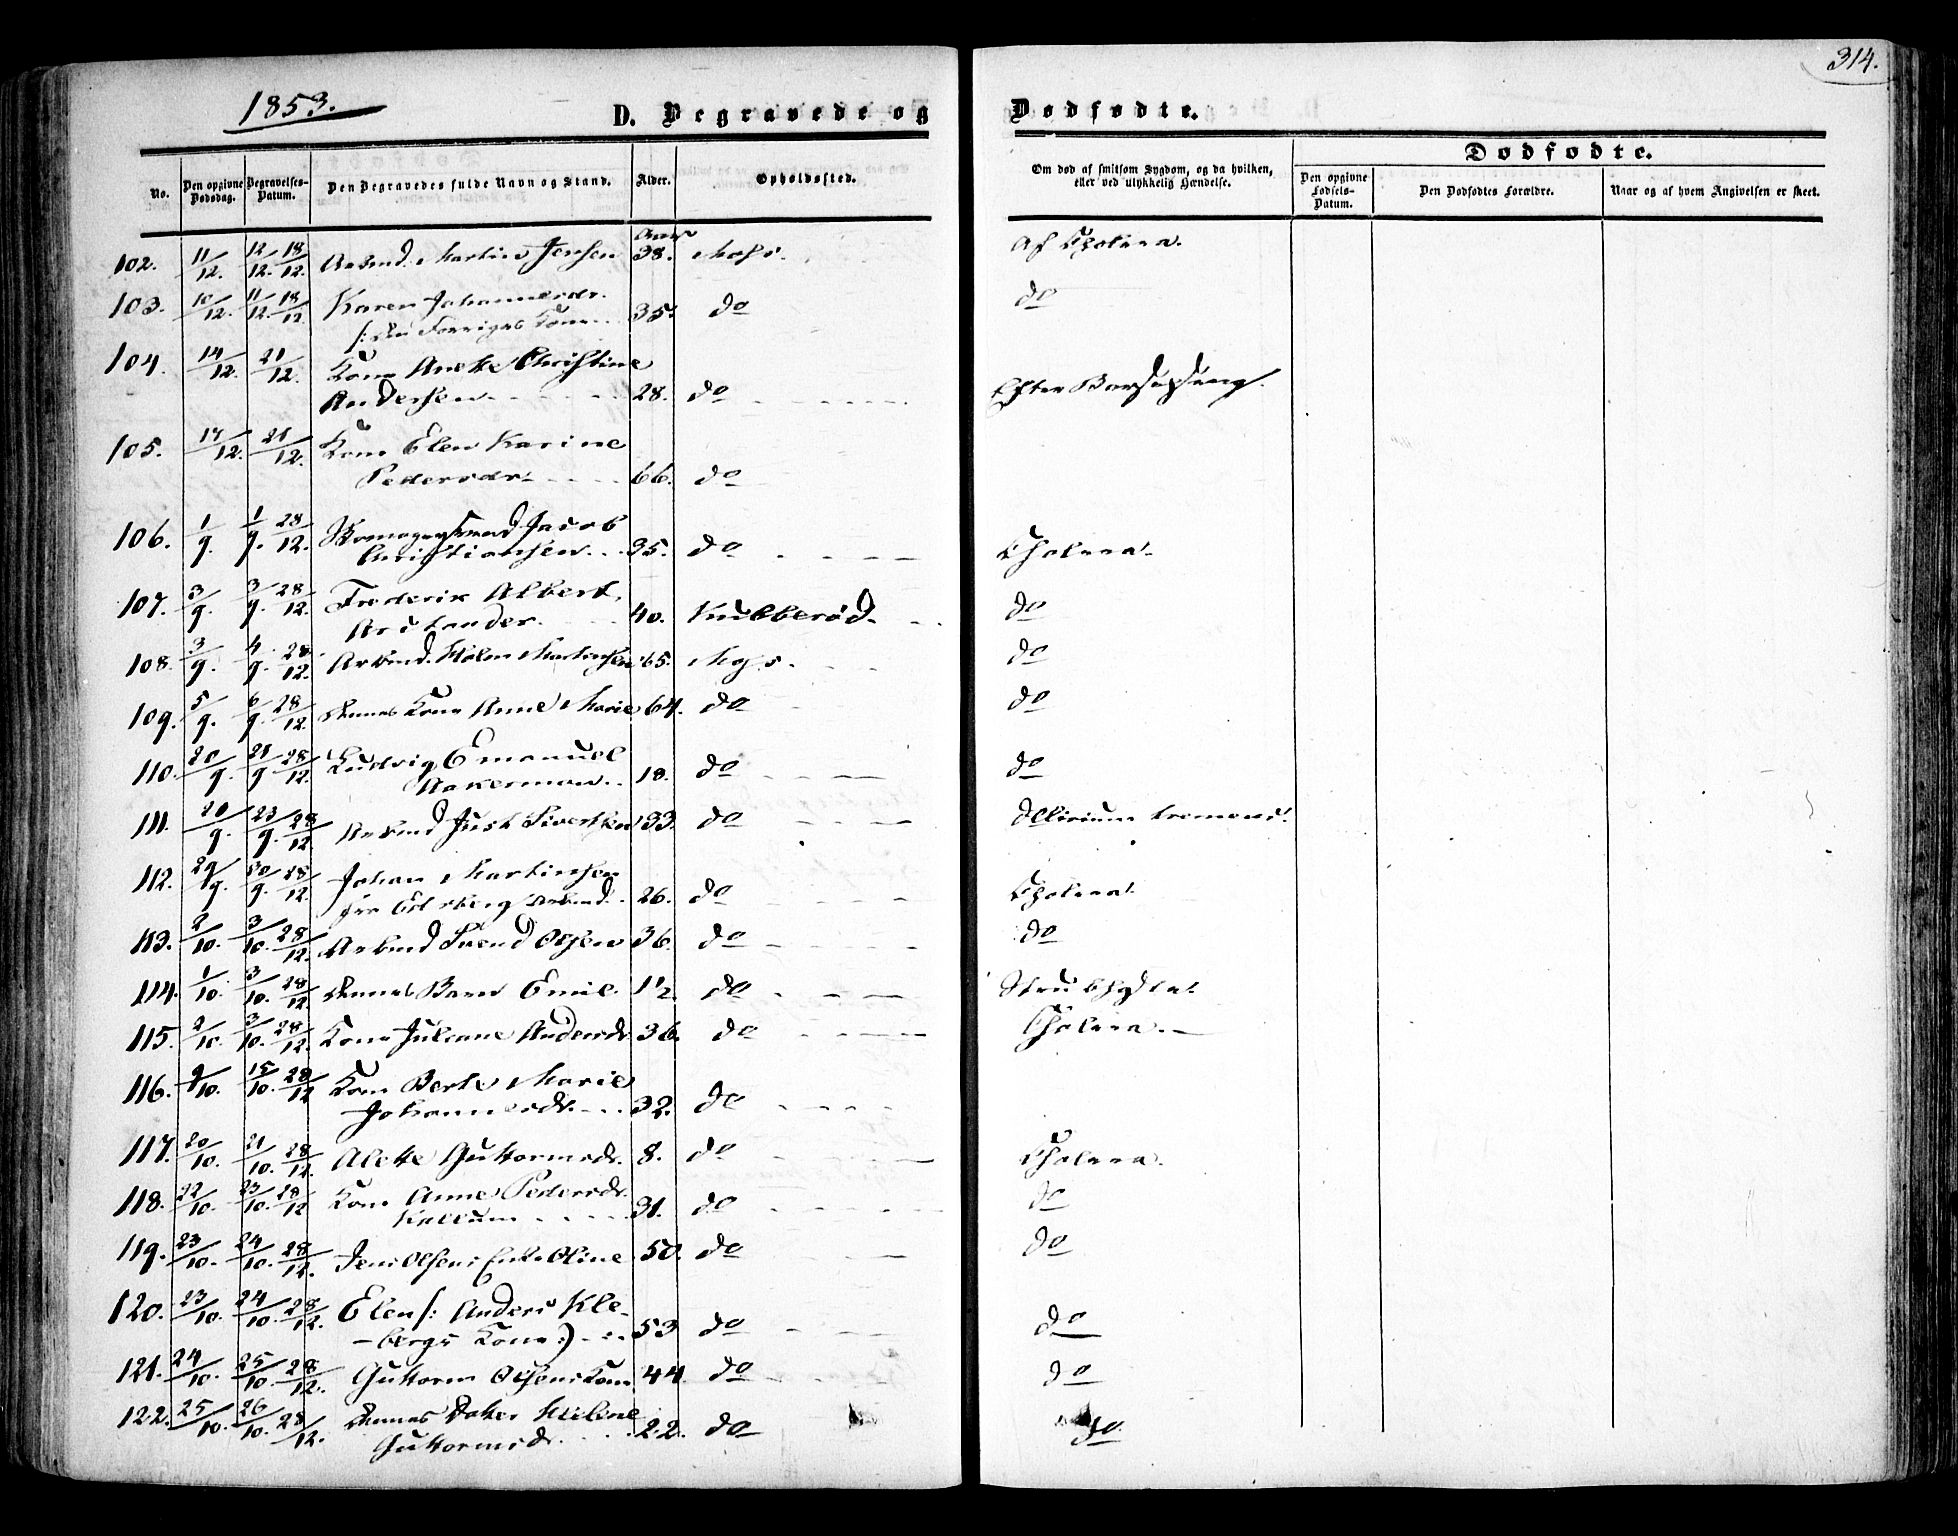 314.
1853.
D. Begravede og Dødfødte.
No. Den opgivne Dødsdag. Begravelses-Datum. Den Begravedes fulde Navn og Stand. Alder. Opholdssted. Om død af smitsom Sygdom, og da hvilken, eller ved ulykkelig Hændelse. Dødfødte. Den opgivne Fødsels-Datum. Den Dødfødtes Forældre. Naar og af hvem Angivelsen er skeet.
102. 11/12. 12/12. 18/12. Arbmd. Martin Jensen 38. Moss. Af Cholera.
103. 10/12. 11/12. 18/12 Karen Johannesdr.
/: den Forriges Kone 35. do do
104. 14/12. 21/12. Kone Anette Christine
Andersen 28. do Efter Barselseng.
105. 17/12. 21/12. Kone Elen Karine
Pedersdr. 66. do
106. 1/9. 1/9. 28/12. Jacob
Christiansen 35. do Cholera.
107. 3/9. 3/9. 28/12. Frederik Albert
40. Kulberød. do
108. 3/9. 4/9. 28/12. Arbmd. Martinsen 65. Moss. do
109. 5/9. 6/9. 28/12. Dennes Kone Anne Marie 64. do do
110. 20/9. 21/9 28/12. Ludvig Emanuel
Aakerman 18. do do
111. 20/9. 23/9. 28/12 Arbmd Just Sivertsen 33. do Delirium tremens.
112. 29/9. 30/9. 28/12. Johan Martinsen
fra Arbmd. 26. do Cholera.
113. 2/10. 3/10. 28/12. Arbmd Svend Olsen 36. do do
114. 1/10. 3/10. 28/12 Dennes Barn Emil. 1 1/2. do Strubehoste.
115. 2/10. 3/10. 28/12. Kone Juliane Andersdr. 36. do Cholera.
116. 9/10. 15/10. 28/12 Kone Berte Marie
Johannesdr. 32. do
117. 20/10. 21/10. 28/12. Alette Guttormsdr. 8. do Cholera.
118. 22/10. 23/10. 28/12 Kone Anne Pedersdr.
Kallum 31. do do
119. 23/10. 24/10. 28/12. Jens Olsens Enke Oline 50. do do
120. 23/10. 24/10. 28/12. Elen /: Anders Kle-
bergs Kone :) 53 do do
121. 24/10. 25/10. 28/12. Guttorm Olsens Kone 44. do do
122. 25/10. 26/10. 28/12. Dennes Datter Heline
Guttormsdr. 22. do do.